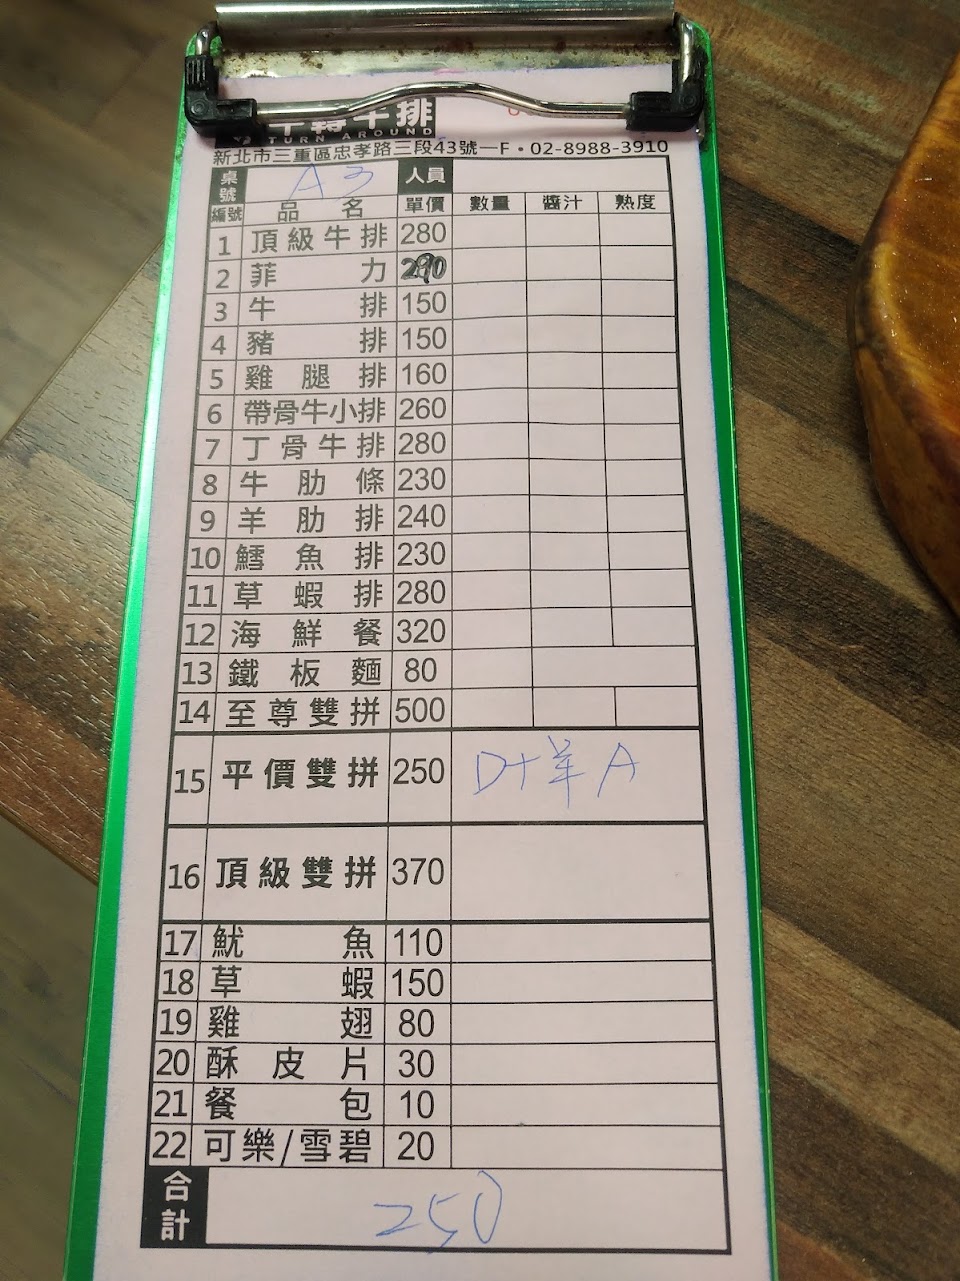 牛轉牛排
TURN AROUND
新北市三重區忠孝路三段43號一F•02-8988-3910
桌號 A3 人員
編號 品名 單價 數量 醬汁 熟度
1 頂級牛排 280
2 菲力 290
3 牛排 150
4 豬排 150
5 雞腿排 160
6 帶骨牛小排 260
7 丁骨牛排 280
8 牛肋條 230
9 羊肋排 240
10 鱈魚排 230
11 草蝦排 280
12 海鮮餐 320
13 鐵板麵 80
14 至尊雙拼 500
15 平價雙拼 250 D+羊 A
16 頂級雙拼 370
17 魷魚 110
18 草蝦 150
19 雞翅 80
20 酥皮片 30
21 餐包 10
22 可樂/雪碧 20
合計 250